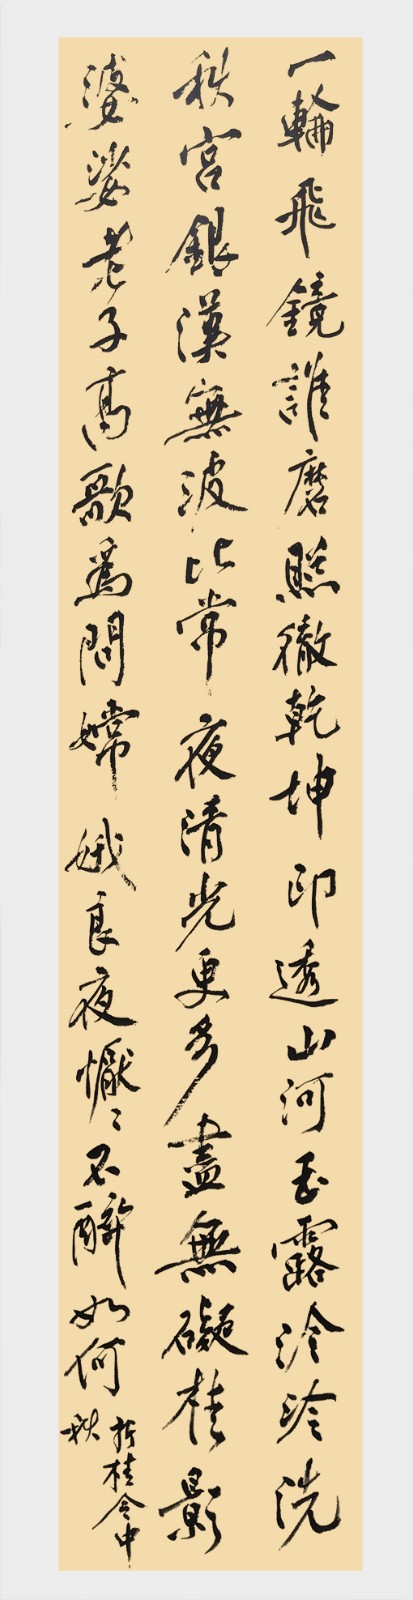 一輪飛鏡誰磨照徹乾坤印透山河玉露泠泠洗
秋宮銀漢無波比常夜清光更多盡無礙桂影
婆娑老子高歌爲問嫦娥良夜懨〻不醉如何
折桂令中
秋